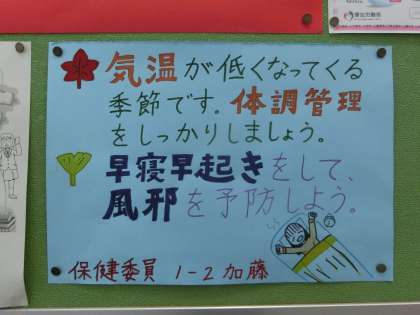 気温が低くなってくる
季節です。体調管理
をしっかりしましょう。
早寝早起きをして、
風邪を予防しよう。
保健委員 1-2 加藤